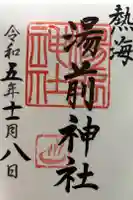 熱海
湯前神社
令和五年十一月八日